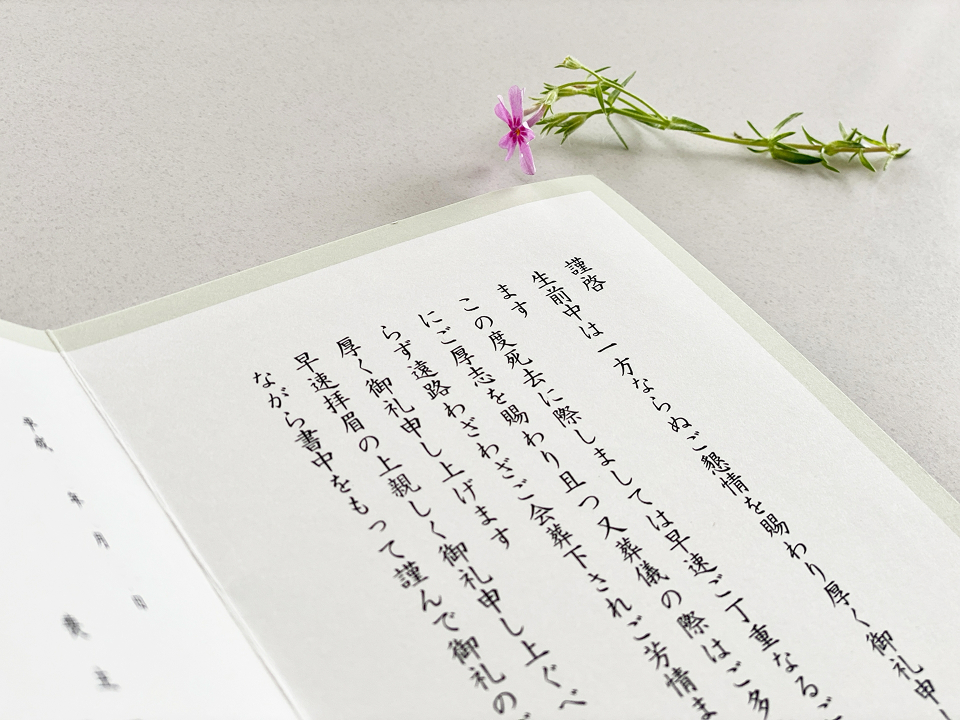 謹啓
生前中は一方ならぬご懇情を賜わり厚く御礼申し
ます
この度死去に際しましては早速ご丁重なるご
にご厚志を賜わり且つ又葬儀の際はご多
らず遠路わざわざご会葬下されご芳情ま
厚く御礼申し上げます
早速拝眉の上親しく御礼申し上ぐべ
ながら書中をもって謹んで御礼のご
年
月
日